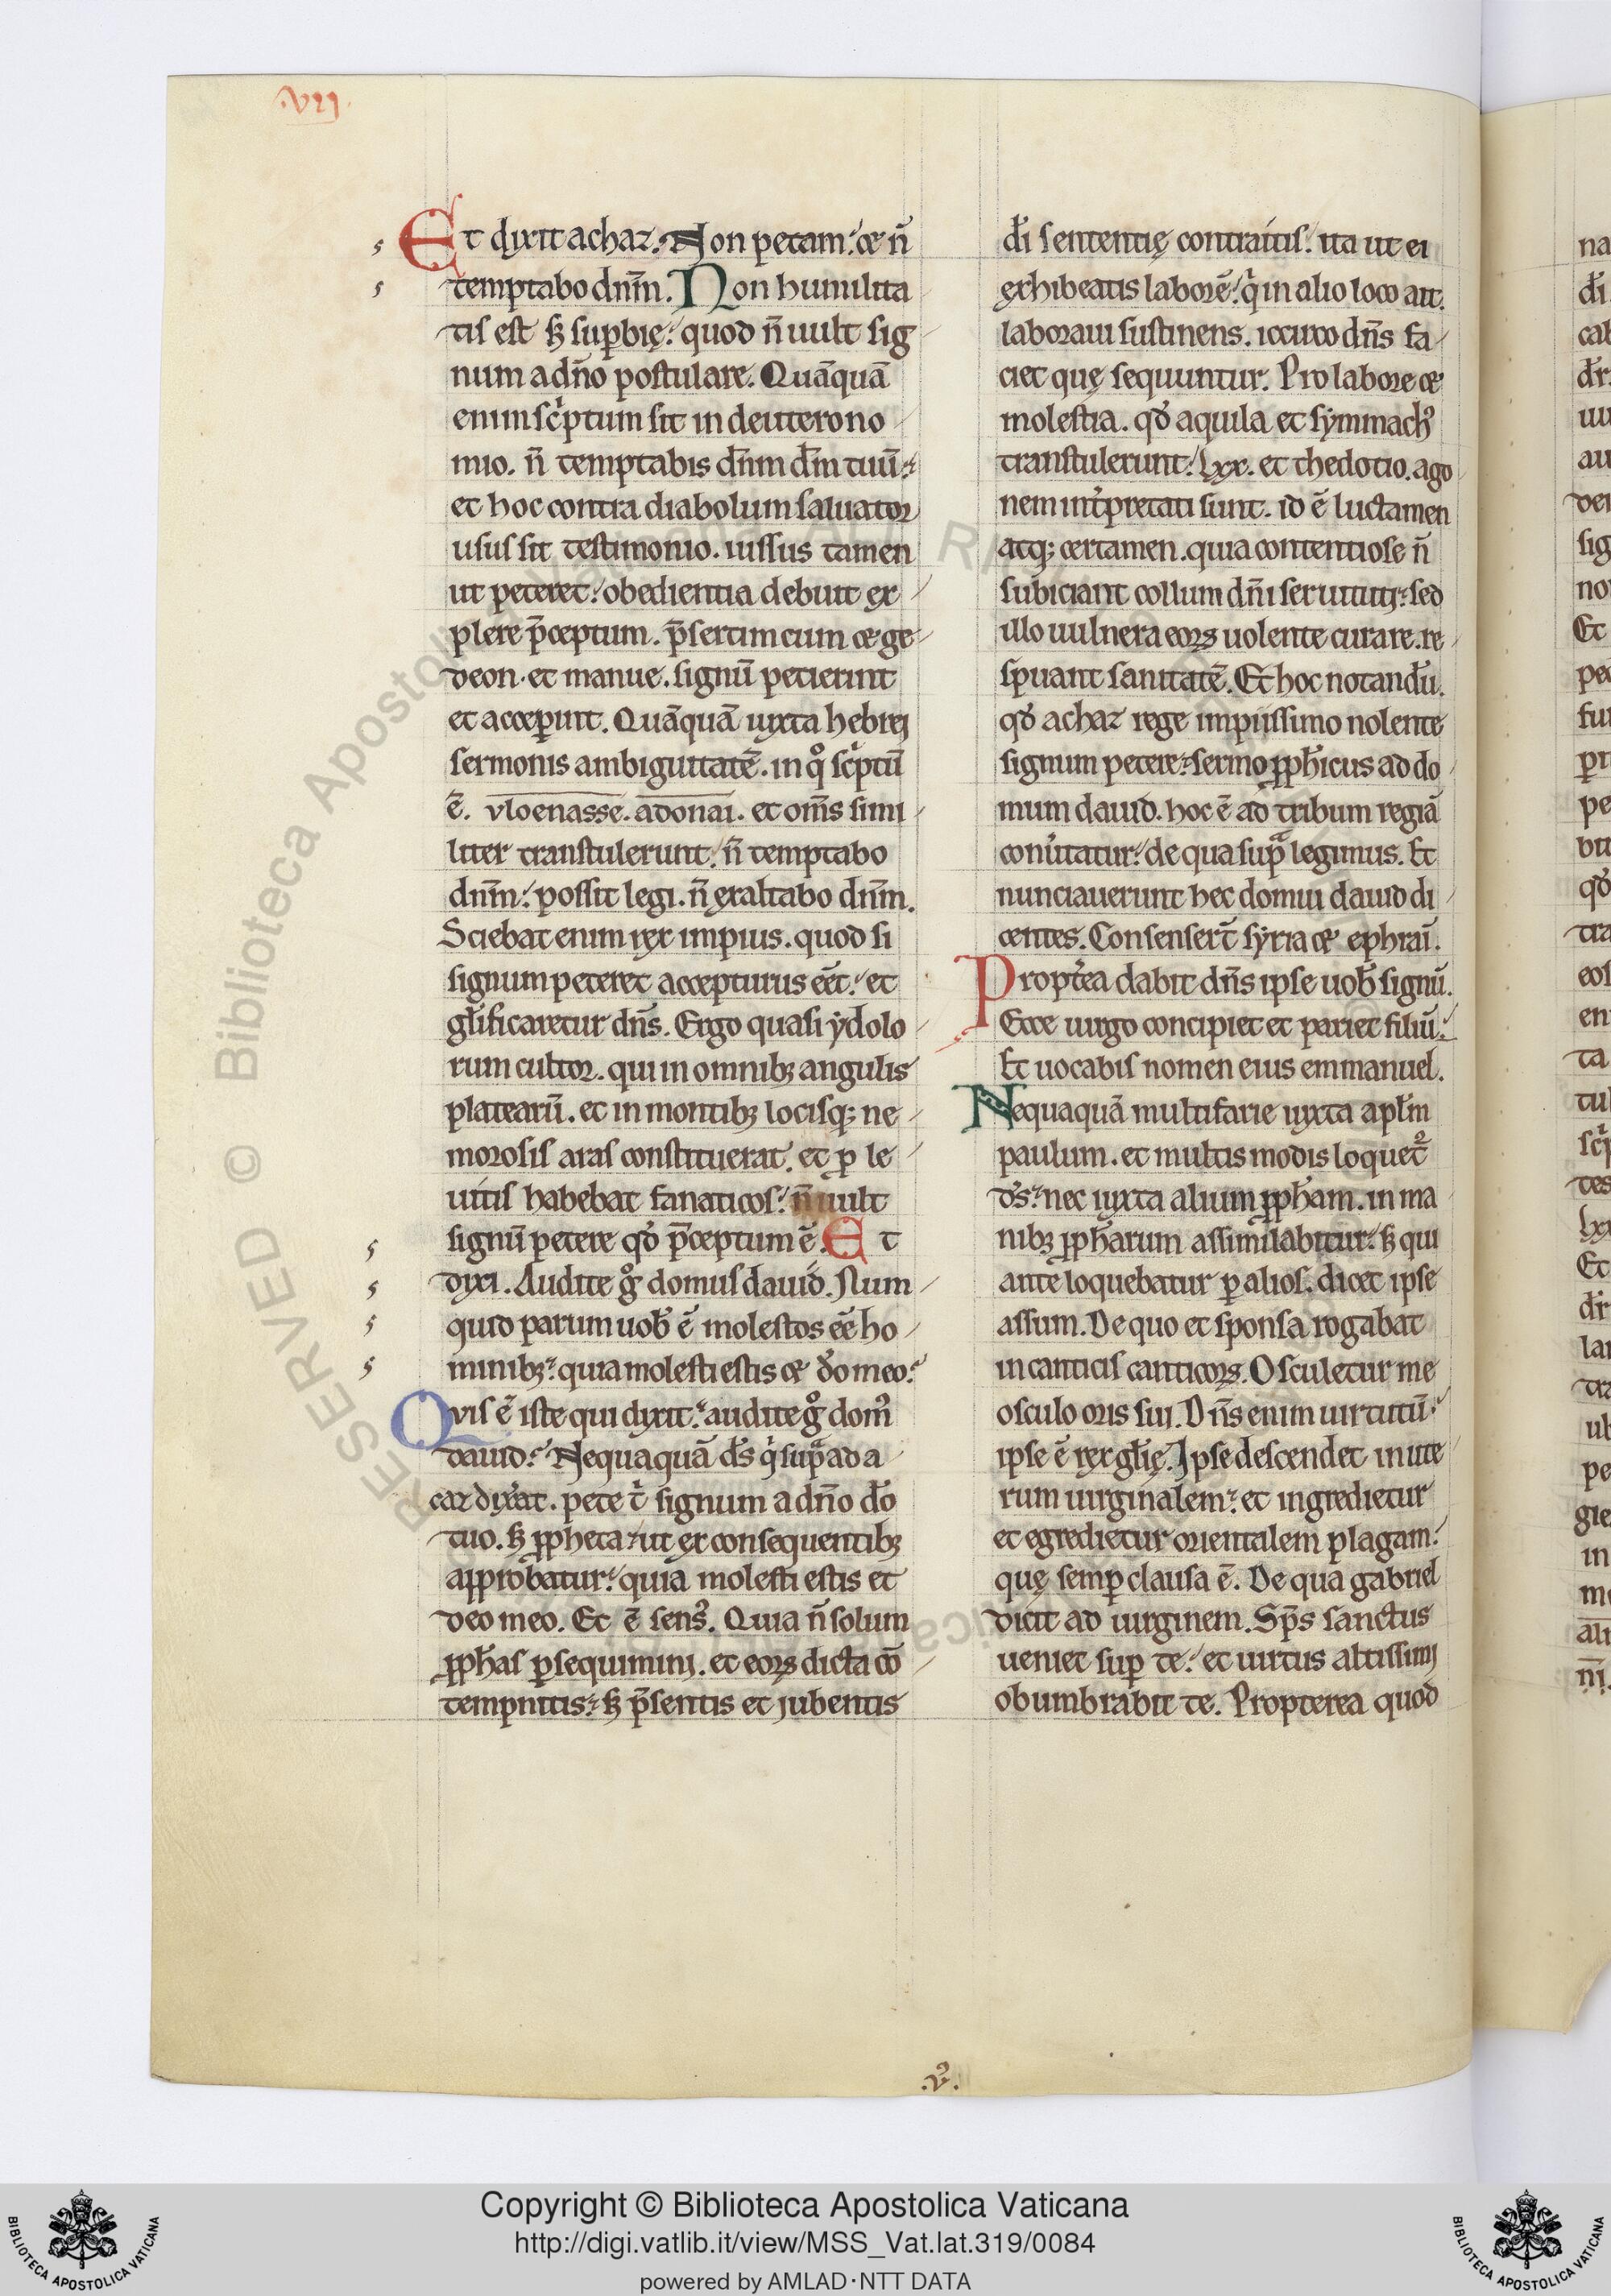 .VII.
Et dixit achaz. Non petam. et n̄
temptabo dnm̄. Non humilita
tis est sꝫ suꝑbię. quod n̄ uult sig
num a dn̄o postulare. Quāquā
enim scͥptum sit in deuterono
mio. n̄ temptabis dn̄m dm̄ tuū.
et hoc contra diabolum saluator
usus sit testimonio. iussus tamen
ut peteret. obedientia debuit ex
plere p̄ceptum. p̄sertim cum et ge
deon. et manue. signū petierint
et acceperint. Quāquā iuxta hebrei
sermonis ambiguitatē. in qͦ scͥptū
ē. vloenasse. adonai. et om̄s simi
liter transtulerunt. n̄ temptabo
dnm̄. possit legi. n̄ exaltabo dnm̄.
Sciebat enim rex impius. quod si
signum peteret accepturus eēt. et
gl̄ificaretur dn̄s. Ergo quasi ydolo
rum cultor. qui in omnibꝫ angulis
platearū. et in montibꝫ locisqꝫ ne
morosis aras constituerat. et ꝓ le
uitis habebat fanaticos. n̄ uult
signū petere qđ p̄ceptum ē. Et
dixi. Audite gͦ domus dauid. Num
quid parum uob̄ ē molestos eē ho
minibꝫ. quia molesti estis et dō meo.
Qvis ē iste qui dixit. audite gͦ domꝰ
dauid. Nequaquā ds̄ qͥ supᵃ ad a
caz dixat. pete tͥ signum a dn̄o dō
tuo. sꝫ ꝓpheta. ut ex consequentibꝫ
approbatur. quia molesti estis et
deo meo. Et ē sensꝰ. Quia n̄ solum
ꝓph̄as ꝑsequimini. et eoꝝ dicta cō
tempnitis. sꝫ p̄sentis et jubentis
dī sententię contraitis. ita ut ei
exhibeatis laborē. qͥ in alio loco ait.
laboraui sustinens. iccirco dn̄s fa
ciet quę sequuntur. Pro labore et
molestia. qđ aquila et symmachꝰ
transtulerunt. lxx. et thedotio. ago
nem int̄pretati sunt. id ē luctamen
atqꝫ certamen. quia contentiose n̄
subiciant collum dn̄i seruituti. sed
illo uulnera eoꝝ uolente curare. re
spuant sanitatē. Et hoc notandū.
qđ achaz rege impiissimo nolente
signum petere. sermo ꝓph̄icus ad do
mum dauid. hoc ē ad tribum regiā
conūtatur. de qua supᵃ legimus. Et
nunciauerunt hec domui dauid di
centes. Consensert̄ syria et ephraī.
Propt̄ea dabit dn̄s ipse uob̄ signū.
Ecce uirgo concipiet et pariet filiū.
Et uocabis nomen eius emmanuel.
Nequaquā multifarie iuxta apl̄m
paulum. et multis modis loquetᷣ
ds̄. nec iuxta alium ꝓph̄am. in ma
nibꝫ ꝓph̄arum assimilabitur. sꝫ qui
ante loquebatur ꝑ alios. dicet ipse
assum. De quo et sponsa rogabat
in canticis canticoꝝ. Osculetur me
osculo oris sui. Dn̄s enim uirtutū.
ipse ē rex gl̄ię. Ipse descendet in ute
rum uirginalem. et ingredietur
et egredietur orientalem plagam.
quę semꝑ clausa ē. De qua gabriel
dicit ad uirginem. Sps̄ sanctus
ueniet suꝑ te. et uirtus altissimi
obumbrabit te. Propterea quod
.vꝰ.
RESERVED © Biblioteca Apostolica
Copyright © Biblioteca Apostolica Vaticana
http://digi.vatlib.it/view/MSS_Vat.lat.319/0084
powered by AMLAD·NTT DATA
BIBLIOTECA APOSTOLICA VATICANA
BIBLIOTECA APOSTOLICA VATICANA